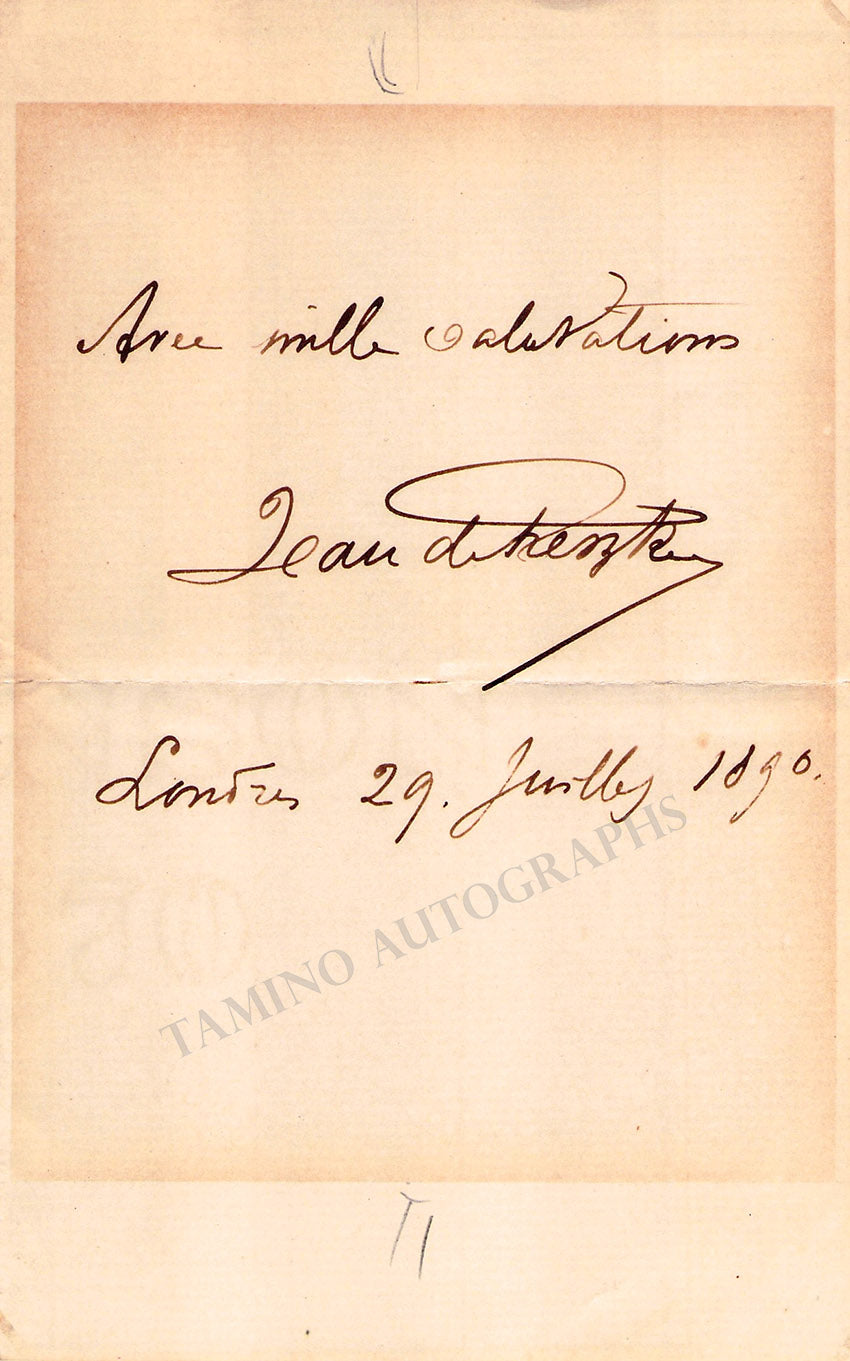 Avec mille salutations
Jean de Reszke
Londres 29. Juillet 1890.
TAMINO AUTOGRAPHS